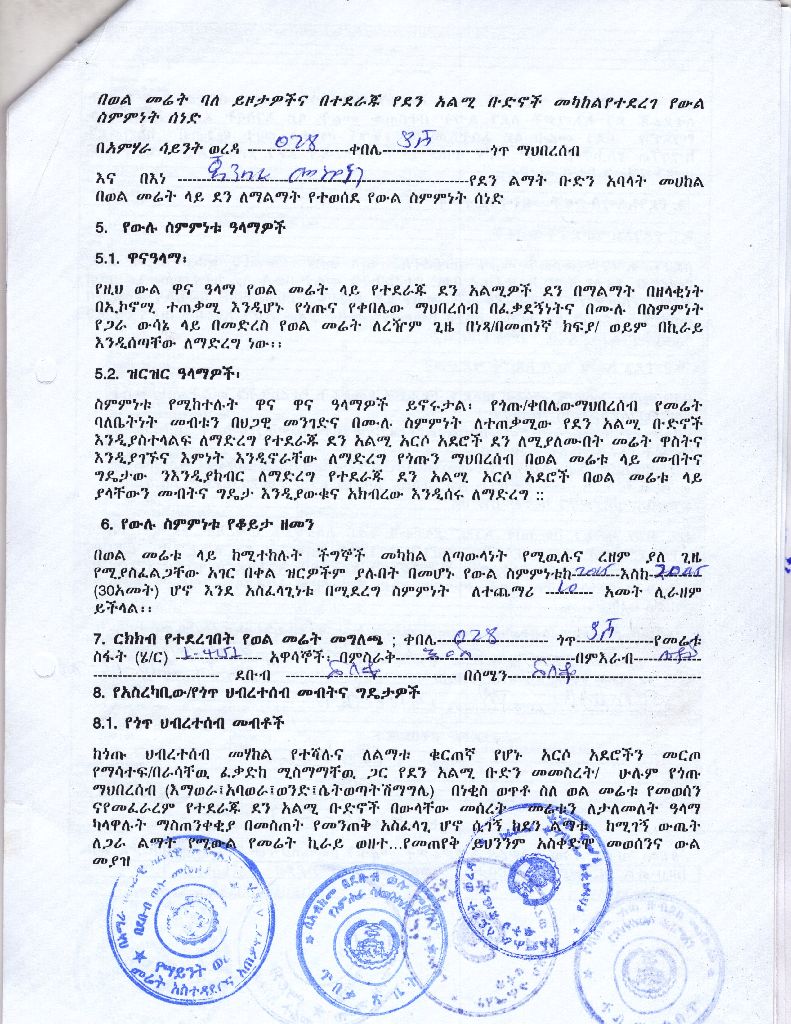 በወል መሬት ባለ ይዞታዎችና በተደራጁ የደን አልሚ ቡድኖች መካከልየተደረገ የውል
ስምምነት ሰነድ
በአምሃራ ሳይንት ወረዳ ---------- 028 ----------ቀበሌ---------- ----------ጎጥ ማህበረሰብ
እና በእነ ---------- ----------የደን ልማት ቡድን አባላት መሀከል
በወል መሬት ላይ ደን ለማልማት የተወሰደ የውል ስምምነት ሰነድ
5. የውሉ ስምምነቱ ዓላማዎች
5.1. ዋናዓላማ፡
የዚህ ውል ዋና ዓላማ የወል መሬት ላይ የተደራጁ ደን አልሚዎች ደን በማልማት በዘላቂነት
በኢኮኖሚ ተጠቃሚ እንዲሆኑ የጎጡና የቀበሌው ማህበረሰብ በፈቃደኝነትና በሙሉ በስምምነት
የጋራ ውሳኔ ላይ በመድረስ የወል መሬት ለረዥም ጊዜ በነጻ/በመጠነኛ ክፍያ/ ወይም በኪራይ
እንዲሰጣቸው ለማድረግ ነው፡፡
5.2. ዝርዝር ዓላማዎች፡
ስምምነቱ የሚከተሉት ዋና ዋና ዓላማዎች ይኖሩታል፡ የጎጡ/ቀበሌውማህበረሰብ የመሬት
ባለቤትነት መብቱን በህጋዊ መንገድና በሙሉ ስምምነት ለተጠቃሚው የደን አልሚ ቡድኖች
እንዲያስተላልፍ ለማድረግ የተደራጁ ደን አልሚ አርሶ አደሮች ደን ለሚያለሙበት መሬት ዋስትና
እንዲያገኙና እምነት እንዲኖራቸው ለማድረግ የጎጡን ማህበረሰብ በወል መሬቱ ላይ መብትና
ግዴታው ንእንዲያከብር ለማድረግ የተደራጁ ደን አልሚ አርሶ አደሮች በወል መሬቱ ላይ
ያላቸውን መብትና ግዴታ እንዲያውቁና አክብረው እንዲሰሩ ለማድረግ ::
6. የውሉ ስምምነቱ የቆይታ ዘመን
በወል መሬቱ ላይ ከሚተከሉት ችግኞች መካከል ለጣውላነት የሚዉሉና ረዘም ያለ ጊዜ
የሚያስፈልጋቸው አገር በቀል ዝርዎችም ያሉበት በመሆኑ የውል ስምምነቱከ-2015-እስከ-2045
(30አመት) ሆኖ እንደ አስፈላጊነቱ በሚደረግ ስምምነት ለተጨማሪ ---10--- አመት ሊራዘም
ይችላል፡፡
7. ርክክብ የተደረገበት የወል መሬት መግለጫ ; ቀበሌ--028---------- ጎጥ ----------የመሬቱ
ስፋት (ሄ/ር) ---------- አዋሳኞች፡ በምስራቅ---------- ----------በምእራብ----------
---------- ደቡብ ---------- ---------- በሰሜን----------
8. የአስረካቢው/የጎጥ ህብረተሰብ መብትና ግዴታዎች
8.1. የጎጥ ህብረተሰብ መብቶች
ከጎጡ ህብረተሰብ መሃከል የተሻሉና ለልማቱ ቁርጠኛ የሆኑ አርሶ አደሮችን መርጦ
የማሳተፍ/በራሳቸዉ ፈቃድከ ሚስማማቸዉ ጋር የደን አልሚ ቡድን መመስረት/ ሁሉም የጎጡ
ማህበረሰብ (እማወራ፣አባወራ፣ወንድ፣ሴትወጣትሽማግሌ) በነቂስ ወጥቶ ስለ ወል መሬቱ የመወሰን
ናየመፈራረም የተደራጁ ደን አልሚ ቡድኖች በውላቸው መሰረት መሬቱን ለታለመለት ዓላማ
ካላዋሉት ማስጠንቀቂያ በመስጠት የመንጠቅ አስፈላጊ ሆኖ ሲገኝ ከደን ልማቱ ከሚገኝ ውጤት
ለጋራ ልማት የሚውል የመሬት ኪራይ ወዘተ...የመጠየቅ ይህንንም አስቀድሞ መወሰንና ውል
መያዝ